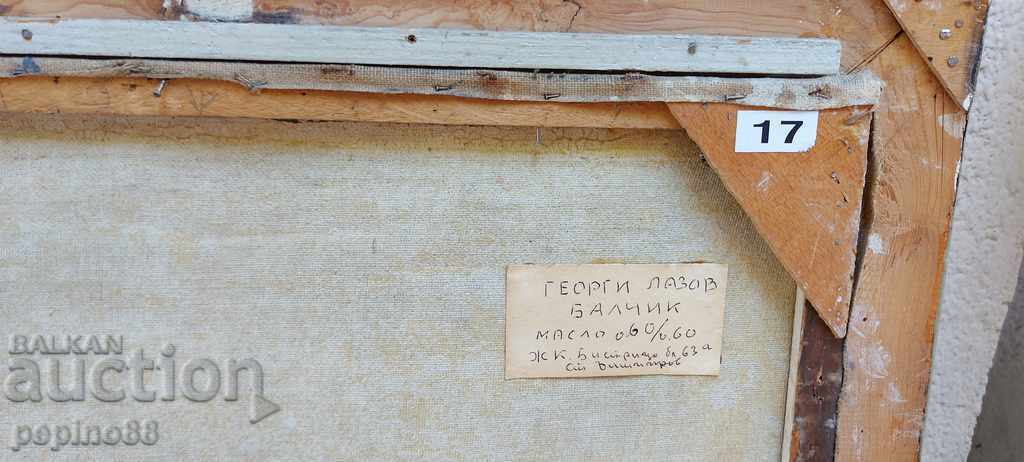 17
ГЕОРГИ ЛАЗОВ
БАЛЧИК
МАСЛО 0.60/0.60
Ж К. Бистрица бл. 63 а
BALKAN
auction
pepino88